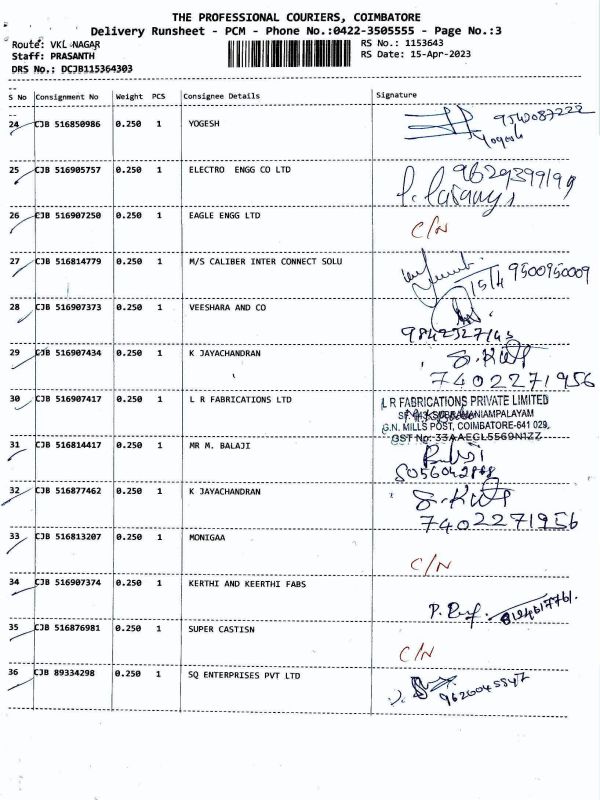 THE PROFESSIONAL COURIERS, COIMBATORE
Delivery Runsheet - PCM - Phone No.:0422-3505555 - Page No.:3
Route: VKL NAGAR
RS No.: 1153643
Staff: PRASANTH
RS Date: 15-Apr-2023
DRS No.: DCJB115364303
S No Consignment No Weight PCS Consignee Details Signature
24 CJB 516850986 0.250 1 YOGESH
Yogesh
25 CJB 516905757 0.250 1 ELECTRO ENGG CO LTD 9629399199
26 CJB 516907250 0.250 1 EAGLE ENGG LTD C/N
27 CJB 516814779 0.250 1 M/S CALIBER INTER CONNECT SOLU 15/4 9500950009
28 CJB 516907373 0.250 1 VEESHARA AND CO
29 CJB 516907434 0.250 1 K JAYACHANDRAN
7402271956
30 CJB 516907417 0.250 1 L R FABRICATIONS LTD L R FABRICATIONS PRIVATE LIMITED
G.N. MILLS POST, COIMBATORE-641 029.
GST No: 33AAECL5569N1ZZ
31 CJB 516814417 0.250 1 MR M. BALAJI Balaji
32 CJB 516877462 0.250 1 K JAYACHANDRAN
7402271956
33 CJB 516813207 0.250 1 MONIGAA C/N
34 CJB 516907374 0.250 1 KERTHI AND KEERTHI FABS
35 CJB 516876981 0.250 1 SUPER CASTISN C/N
36 CJB 89334298 0.250 1 SQ ENTERPRISES PVT LTD